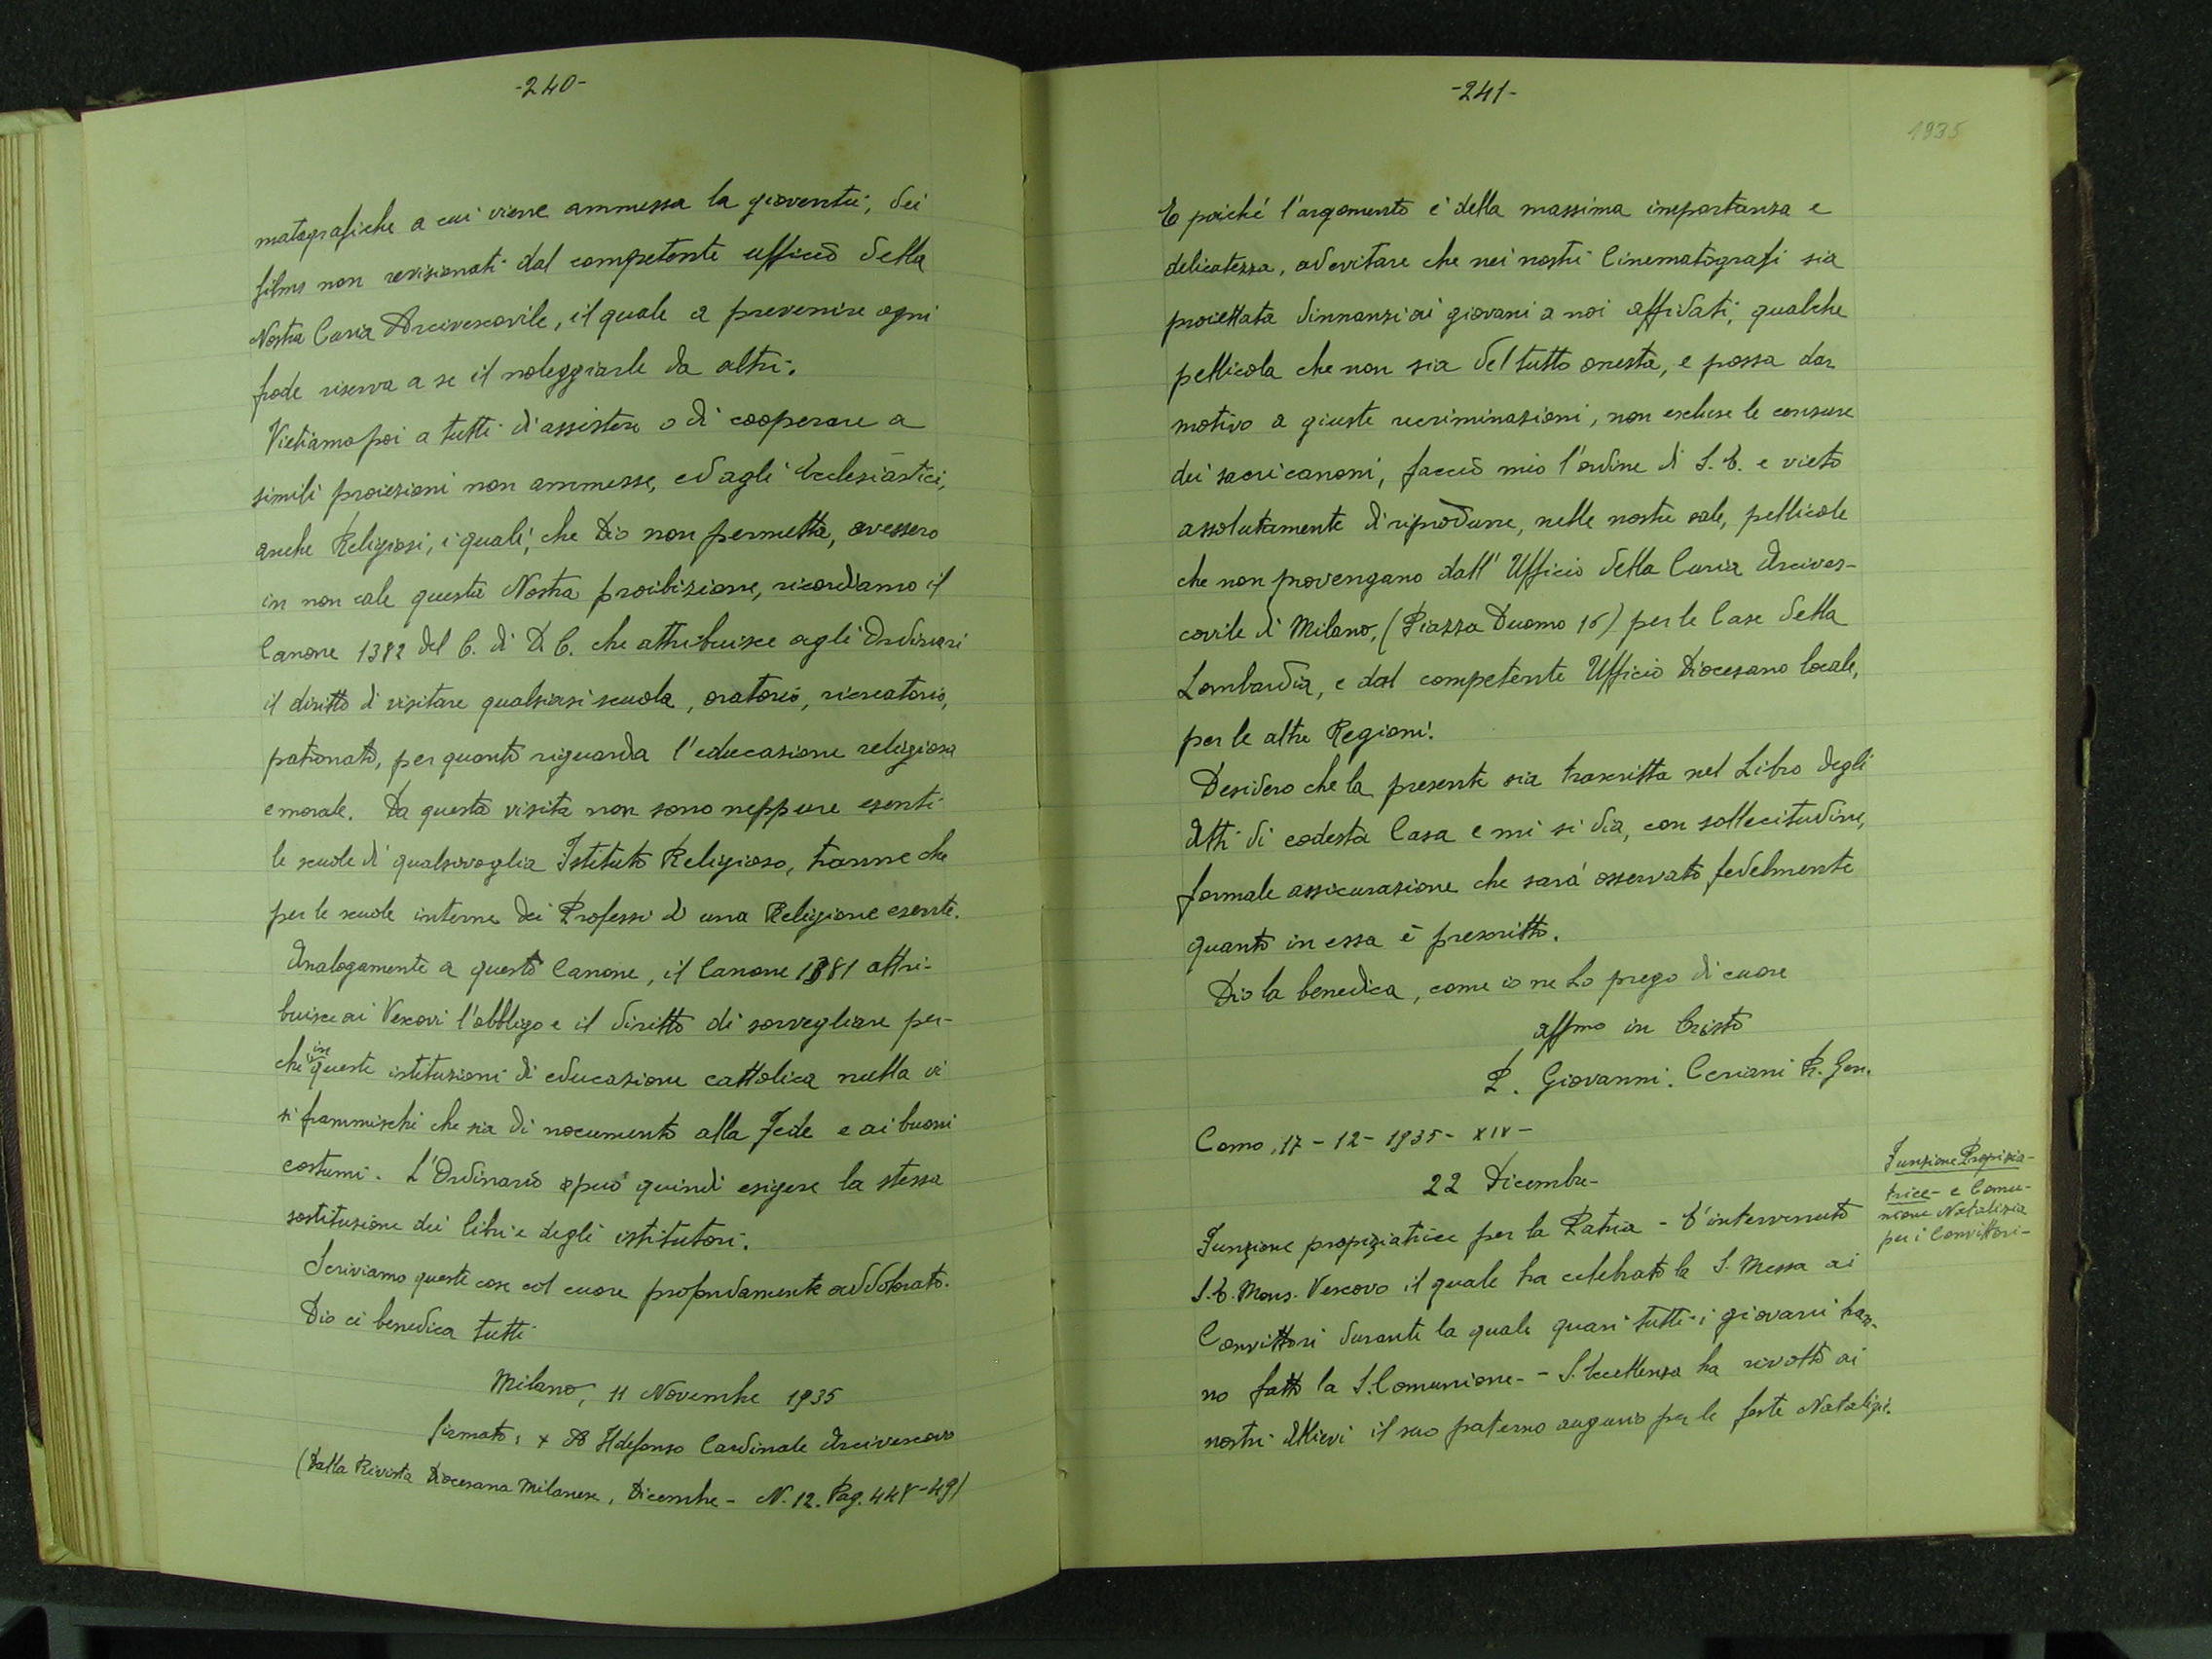 -240-
matografiche a cui viene ammessa la gioventù, dei
films non revisionati dal competente ufficio della
Nostra Curia Arcivescovile, il quale a prevenire ogni
frode riserva a se il noleggiarle da altri.
Vietiamo poi a tutti di assistere o di cooperare a
simili proiezioni non ammesse, ed agli Ecclesiastici,
anche Religiosi, i quali, che Dio non permetta, avessero
in non cale questa Nostra proibizione, ricordiamo il
Canone 1382 del C. di D. C. che attribuisce agli Ordinari
il diritto di visitare qualsiasi scuola, oratorio, ricreatorio,
patronato, per quanto riguarda l'educazione religiosa
e morale. Da questa visita non sono neppure esenti
le scuole di qualsivoglia Istituto Religioso, tranne che
per le scuole interne dei Professi d'una Religione esente.
Analogamente a questo Canone, il Canone 1381 attri-
buisce ai Vescovi l'obbligo e il diritto di sorvegliare per-
chè in queste istituzioni di educazione cattolica nulla vi
si frammischi che sia di nocumento alla Fede e ai buoni
costumi. L'Ordinario può quindi esigere la stessa
sostituzione dei libri e degli istitutori.
Scriviamo queste cose col cuore profondamente addolorato.
Dio ci benedica tutti
Milano, 11 Novembre 1935
firmato: + A Ildefonso Cardinale Arcivescovo
(Dalla Rivista Diocesana Milanese, Dicembre - N. 12. Pag. 448-49)
-241-
1935
E poiché l'argomento è della massima importanza e
delicatezza, ad evitare che nei nostri Cinematografi sia
proiettata dinnanzi ai giovani a noi affidati, qualche
pellicola che non sia del tutto onesta, e possa dar
motivo a giuste recriminazioni, non escluse le censure
dei sacri canoni, faccio mio l'ordine di S. E. e vieto
assolutamente di riprodurre, nelle nostre sale, pellicole
che non provengano dall'Ufficio della Curia Arcives-
covile di Milano, (Piazza Duomo 16) per le Case della
Lombardia, e dal competente Ufficio Diocesano locale,
per le altre Regioni.
Desidero che la presente sia trascritta nel Libro degli
Atti di codesta Casa e mi si dia, con sollecitudine,
formale assicurazione che sarà osservato fedelmente
quanto in essa è prescritto.
Dio la benedica, come io ne Lo prego di cuore
affmo in Cristo
P. Giovanni Ceriani P. Gen.
Como, 17-12-1935- XIV-
22 Dicembre-
Funzione Propizia-
trice- e Comu-
nione Natalizia
per i Convittori-
Funzione propiziatrice per la Patria - È intervenuto
S. E. Mons. Vescovo il quale ha celebrato la S. Messa ai
Convittori durante la quale quasi tutti i giovani han-
no fatto la S. Comunione- - S. Eccellenza ha rivolto ai
nostri Allievi il suo paterno augurio per le feste Natalizie.